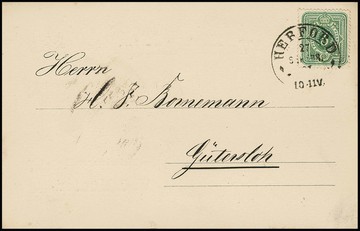 HERFORD
10-11V.
Herrn
H. F. Bornemann
Gütersloh